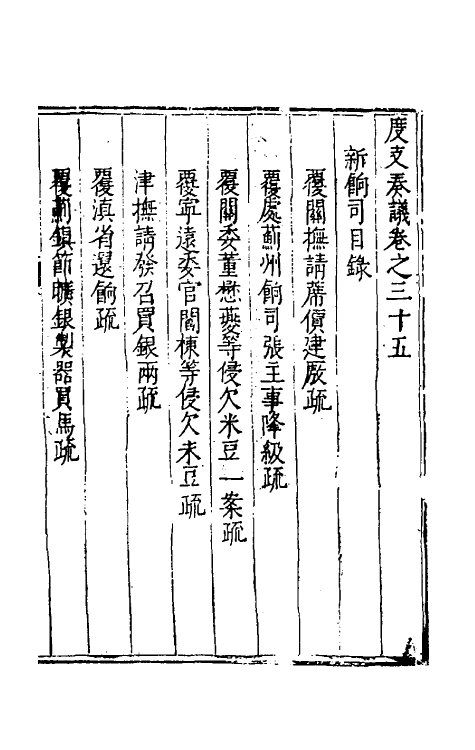 度支奏議卷之三十五
新餉司目錄
覆關撫請蓆價建廒疏
覆處薊州餉司張主事降級疏
覆關委董懋夔等侵欠米豆一案疏
覆寧遠委官閻棟等侵欠米豆疏
津撫請發召買銀兩疏
覆滇省還餉疏
覆薊鎮節曠銀製器買馬疏